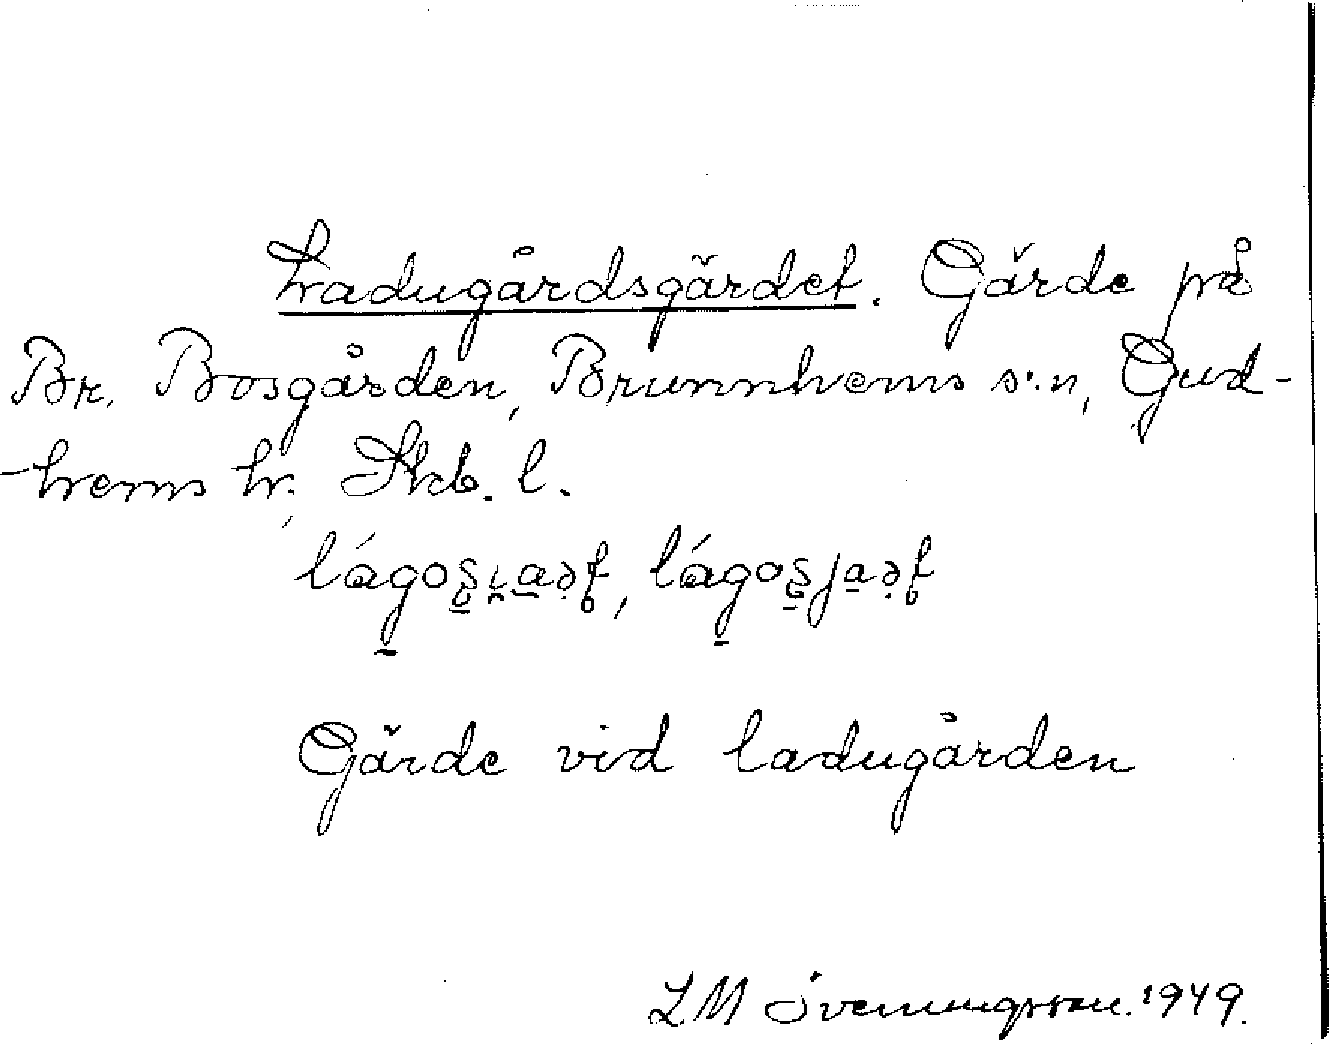 Ladugårdsgärdet. Gärde på
Br. Bosgården, Brunnhems s:n, Gud-
-hems hr, Skb. l.
Gärde vid ladugården
LM Svenungsson. 1949.